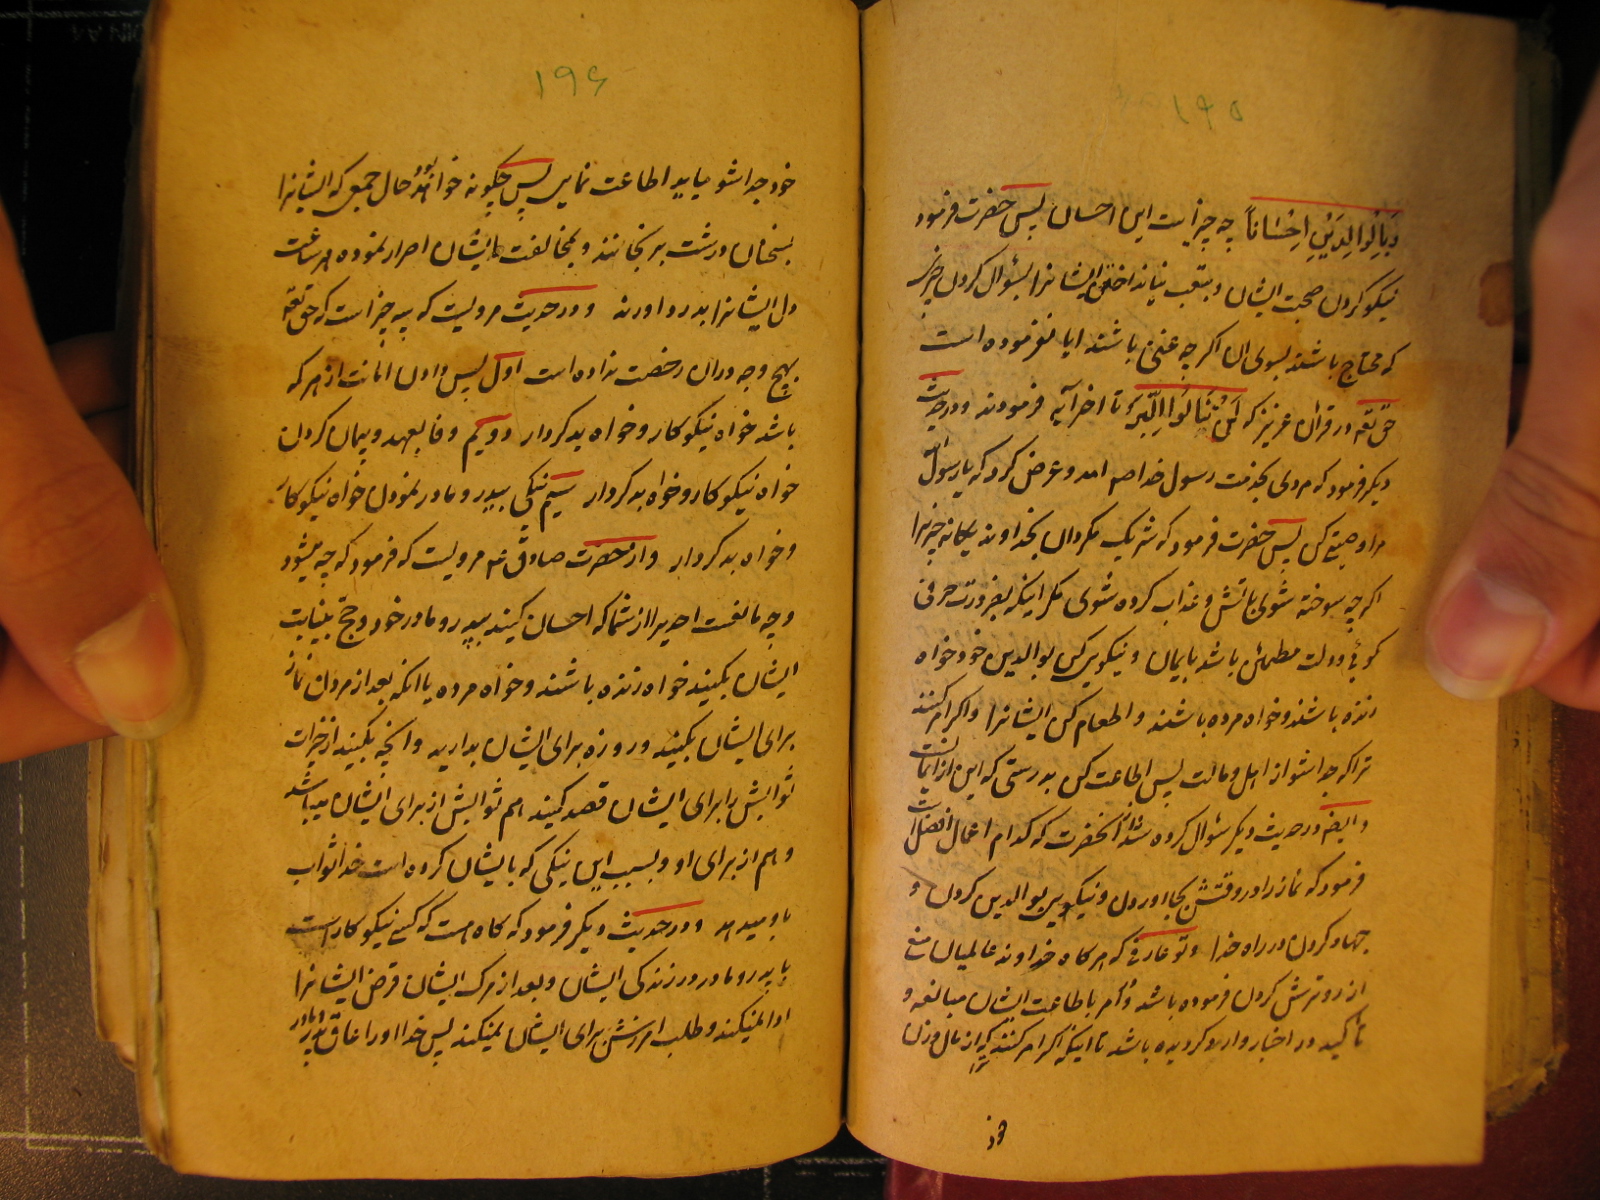 ۱۹۵
وَبِالْوالِدَیْنِ اِحْسٰاناً چه چیز است این احسان پس حضرت فرمود
نیکو کردن صحبت ایشان و بتعب نیانداختن ایشانرا بسؤال کردن چیزی
که محتاج باشند بسوی ان اگر چه غنی باشند ایا نفرموده است
حق تعه در قران عزیز که لَنْ تَنٰالُوا الْبِرَّ تا اخر آیه فرمودند و در حدیث
دیگر فرمود که مردی بخدمت رسول خدا صم امد و عرض کرد که یا رسول الله
مرا وصیتی کن پس حضرت فرمود که شریک مگردان بخداوند یکانه چیزیرا
اگر چه سوخته شوی باتش و عذاب کرده شوی مگر اینکه بضرورت حرفی
کوئی و دلت مطمئن باشد بایمان و نیکویی کن بوالدین خود خواه
زنده باشند و خواه مرده باشند و اطعام کن ایشانرا و اگر امر کنند
ترا که جدا شو از اهل و مالت پس اطاعت کن بدرستی که این از ایمانست
و ایضه در حدیث دیگر سؤال کرده شد از آنحضرت که کدام اعمال افضل است
فرمود که نماز را در وقتش بجا اوردن و نیکویی بوالدین کردن و
جهاد کردن در راه خدا و تو عارفی که هر کاه خداوند عالمیان منع
از رو ترش کردن فرموده باشد و امر باطاعت ایشان مبالغه و
تأکید در اخبار وارد کردیده باشد تا اینکه اگر امر کنند ترا که از مال و زن
خود
۱۹۶
خود جدا شو میباید اطاعت نمایی پس چگونه خواهد بود حال جمعی که ایشانرا
بسخنان درشت برنجانند و بمخالفت ایشان اصرار نموده هر ساعت
دل ایشانرا بدرد اورند و در حدیث مرویست که سه چیز است که حق تعه
بهیچ وجه در ان رخصت نداده است اول پس دادن امانت از هر که
باشد خواه نیکو کار و خواه بدکردار دویم وفا بعهد و پیمان کردن
خواه نیکو کار و خواه بدکردار سیم نیکی بپدر و مادر نمودن خواه نیکو کار
و خواه بدکردار و از حضرت صادق عم مرویست که فرمود که چه میشود
و چه مانعست احدیرا از شما که احسان کنید بپدر و مادر خود و حج بنیابت
ایشان بکنید خواه زنده باشند و خواه مرده یا انکه بعد از مردن نماز
برای ایشان بکنید و روزه برای ایشان بدارید و انچه بکنید از خیرات
ثوابش را برای ایشان قصد کنید هم ثوابش از برای ایشان میباشد
و هم از برای او و بسبب این نیکی که بایشان کرده است خدا ثواب
باو میدهد و در حدیث دیگر فرمود که کاه هست که کسی نیکو کار است
با پدر و مادر در زندگی ایشان و بعد از مرک ایشان قرض ایشانرا
ادا نمیکند و طلب امرزش برای ایشان نمیکند پس خدا او را عاق پدر و مادر